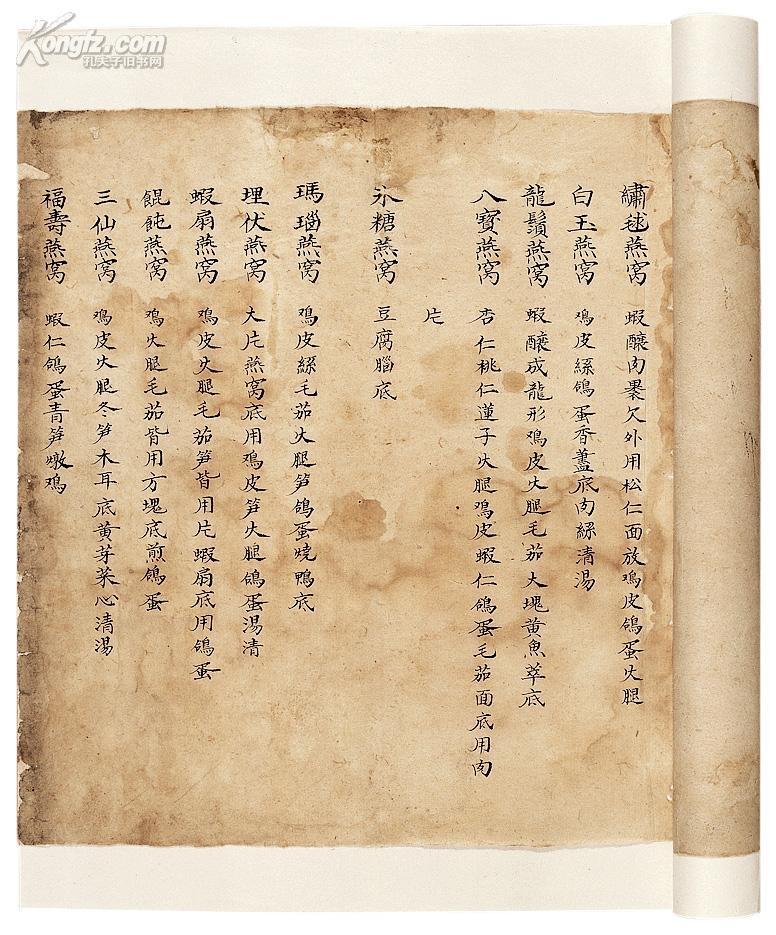 Kongfz.com
孔夫子旧书网
繡毬燕窝 蝦釀肉裹欠外用松仁面放鳮皮鴿蛋火腿
白玉燕窝 鳮皮絲鴿蛋香蕈底肉絲清湯
龍鬚燕窝 蝦釀成龍形鳮皮火腿毛茄大塊黄魚萃底
八寳燕窝 杏仁桃仁蓮子火腿鳮皮蝦仁鴿蛋毛茄面底用肉
片
氷糖燕窝 豆腐腦底
瑪瑙燕窝 鳮皮絲毛茄火腿笋鴿蛋燒鴨底
埋伏燕窝 大片燕窝底用鳮皮笋火腿鴿蛋湯清
蝦扇燕窝 鳮皮火腿毛茄笋皆用片蝦扇底用鴿蛋
餛飩燕窝 鳮火腿毛茄皆用方塊底煎鴿蛋
三仙燕窝 鳮皮火腿冬笋木耳底黄芽菜心清湯
福壽燕窝 蝦仁鴿蛋青笋燉鳮